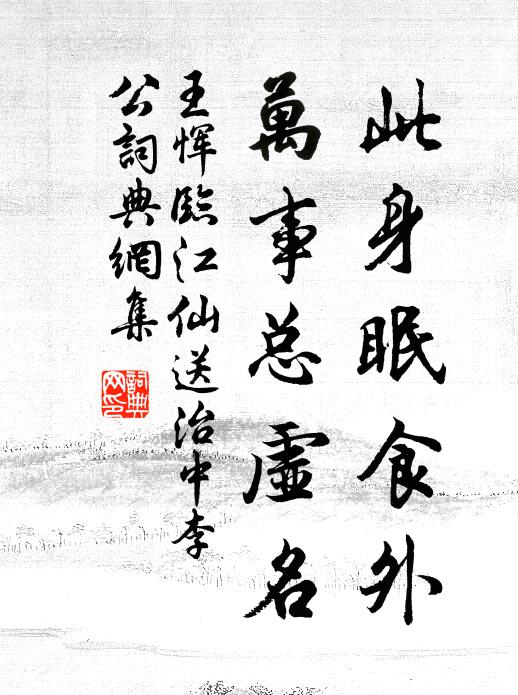 此身眠食外
萬事总虛名
王恽臨江仙送治中李
公詞典網集
詞典
网印